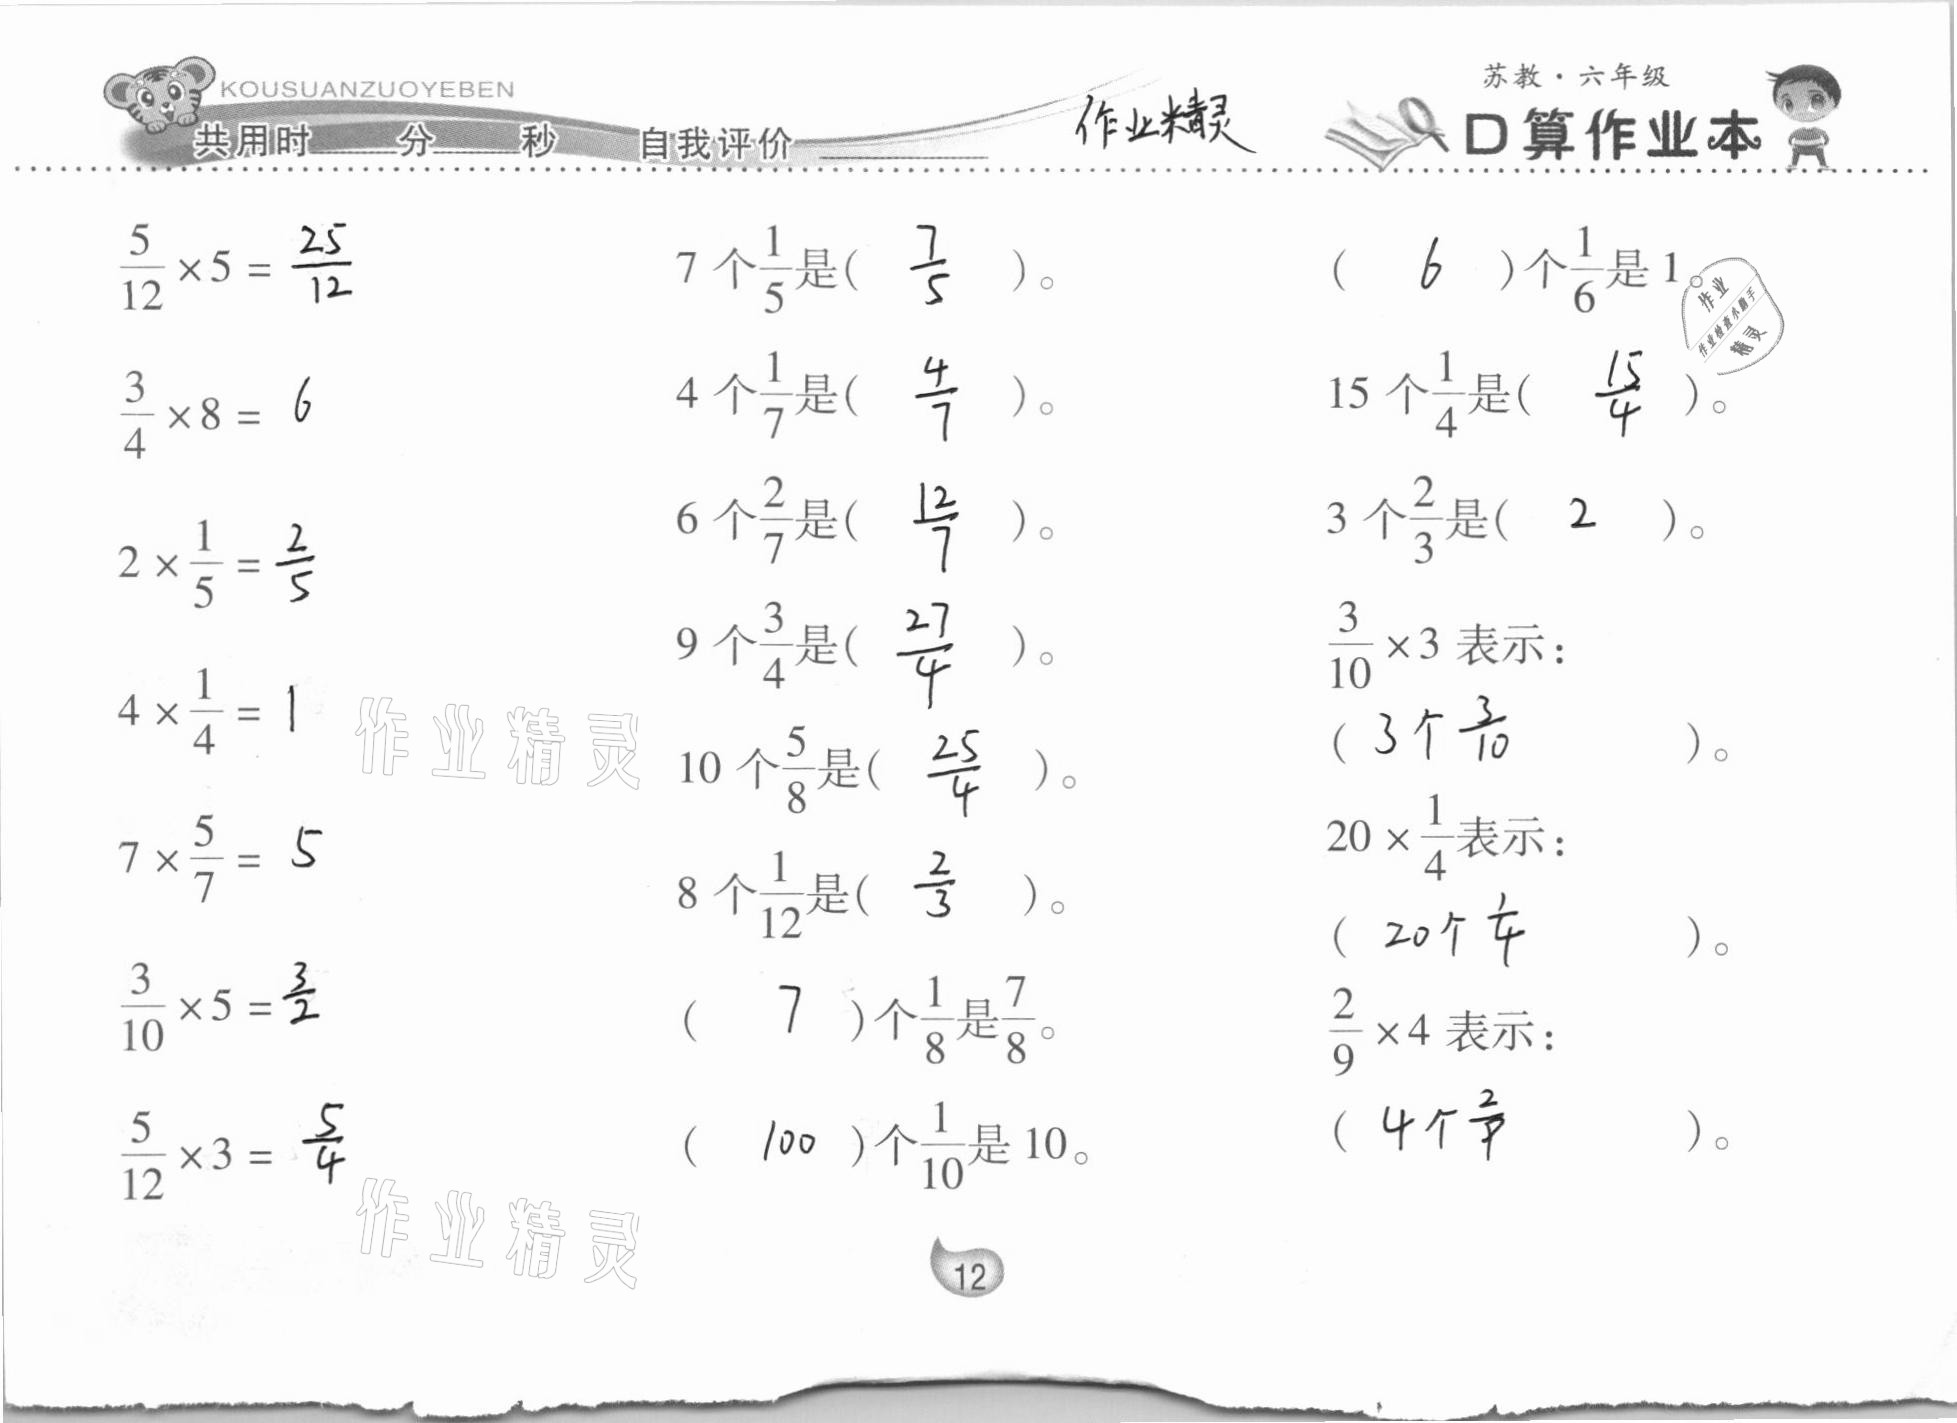 KOUSUANZUOYEBEN
共用时____分____秒 自我评价________
作业精灵
苏教·六年级
口算作业本
5/12 ×5 = 25/12
3/4 ×8 = 6
2 × 1/5 = 2/5
4 × 1/4 = 1
7 × 5/7 = 5
3/10 ×5 = 3/2
5/12 ×3 = 5/4
7 个 1/5 是( 7/5 )。
4 个 1/7 是( 4/7 )。
6 个 2/7 是( 12/7 )。
9 个 3/4 是( 27/4 )。
10 个 5/8 是( 25/4 )。
8 个 1/12 是( 2/3 )。
( 7 )个 1/8 是 7/8。
( 100 )个 1/10 是 10。
( 6 )个 1/6 是 1。
15 个 1/4 是( 15/4 )。
3 个 2/3 是( 2 )。
3/10 ×3 表示:
( 3个 3/10 )。
20 × 1/4 表示:
( 20个 1/4 )。
2/9 ×4 表示:
( 4个 2/9 )。
作业
作业检查小助手
精灵
作业精灵
作业精灵
12